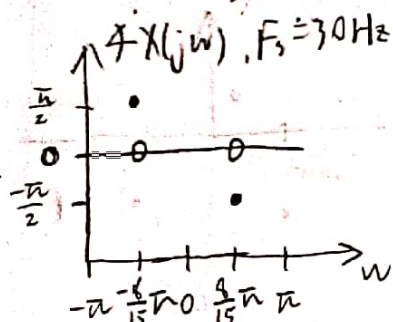 ∡X(jw), Fs=30Hz
π/2
0
-π/2
w
-π -8/15 π 0 8/15 π π